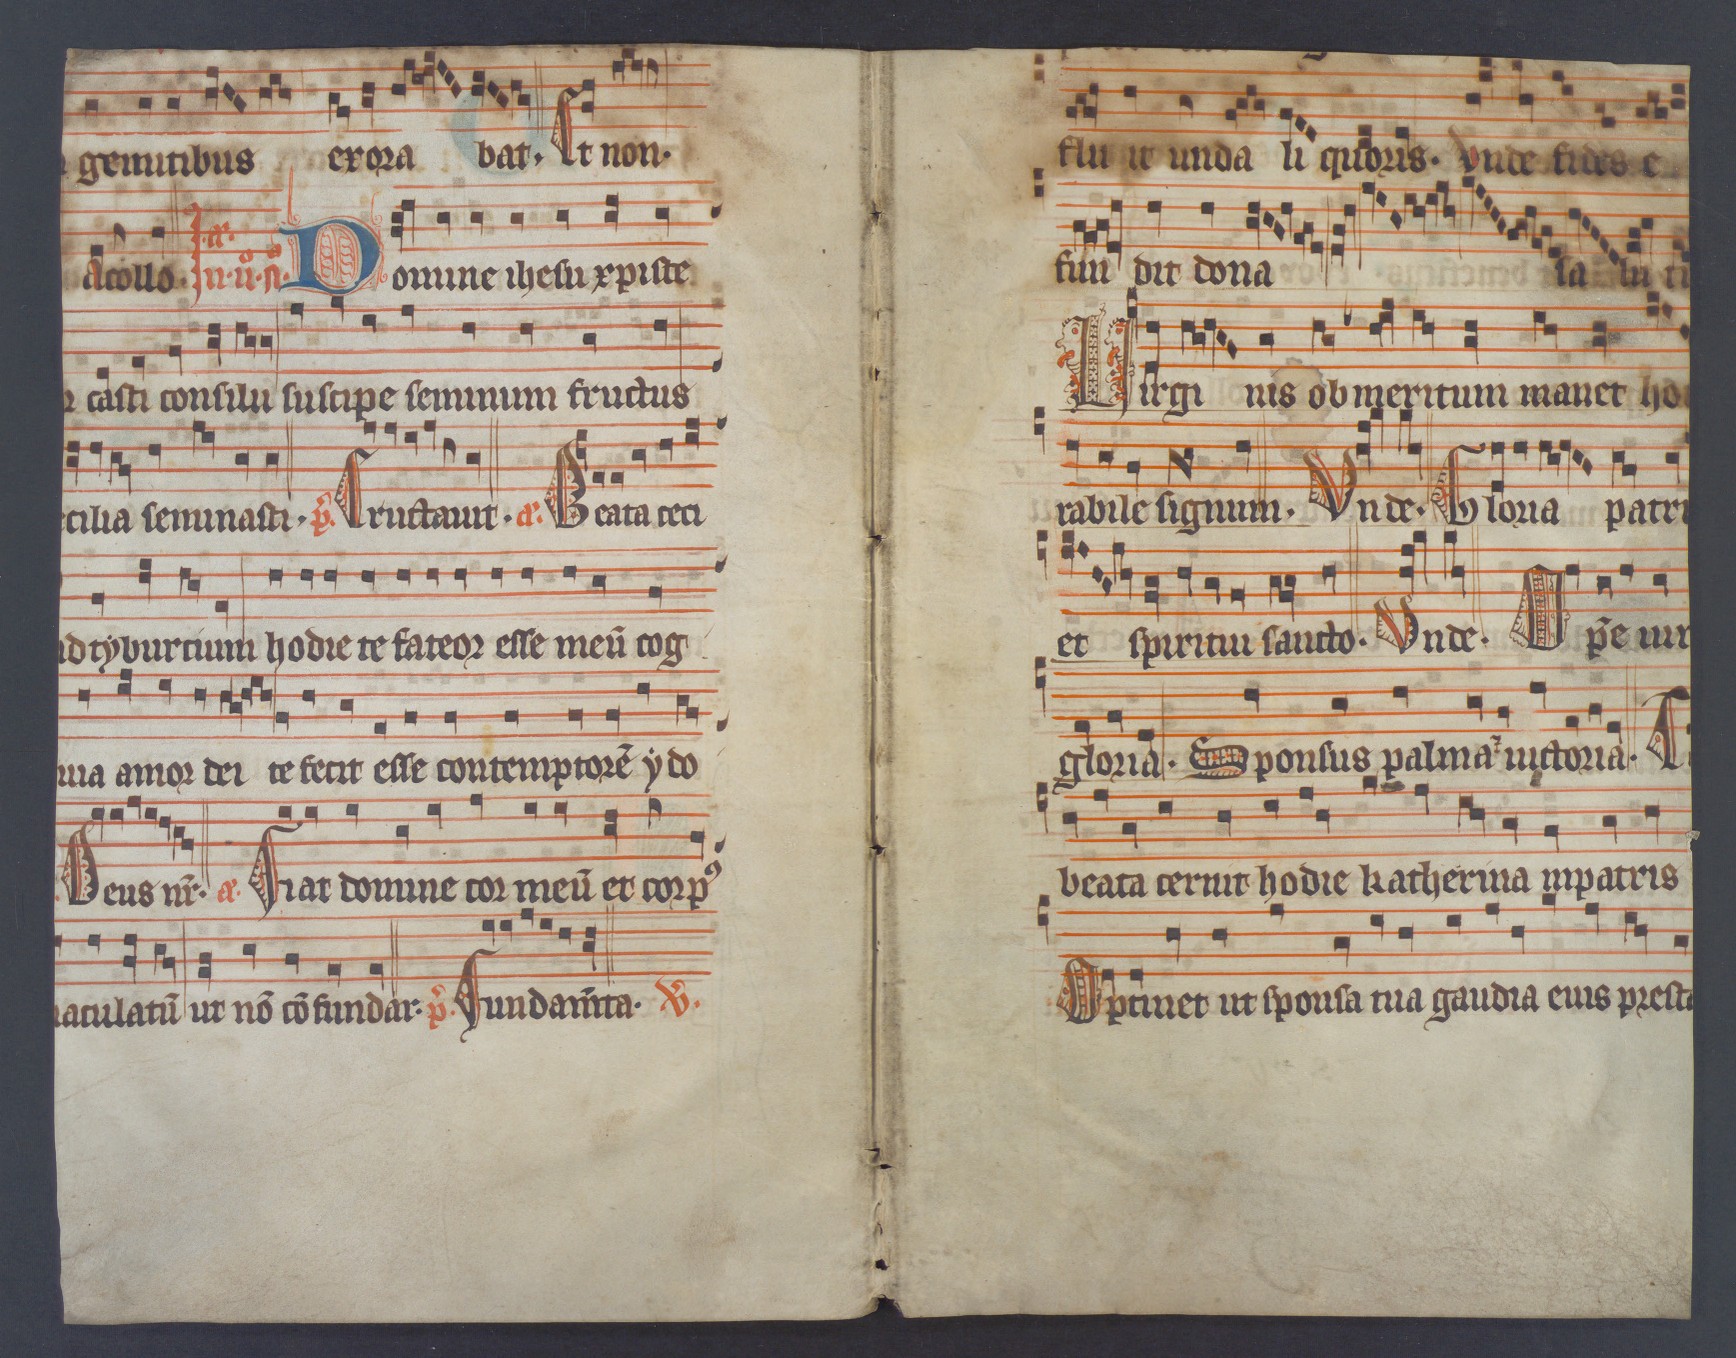 gemitibus exora bat. Et non.
A collo. In·ii·n. a. Domine ihesu xpiste
casti consilii suscipe seminum fructus
cilia seminasti. p. Eructauit. a. Beata ceci
ad tyburtium hodie te fateor esse meū cog
amor dei te fecit esse contemptorē ydo
Deus nr. a. Fiat domine cor meū et corpꝰ
maculatū ut nō cōfundar. p. Fundam̄ta. v.
flu it unda li quoris. Vnde fides e
fun dit dona sa lu ti
Uirgi nis ob meritum manet ho
rabile signum. Vnde. Gloria patri
et spiritui sancto. Vnde.
gloria. Sponsus palma uictoria.
beata cernit hodie katherina in patris
Optinet ut sponsa tua gaudia eius presta